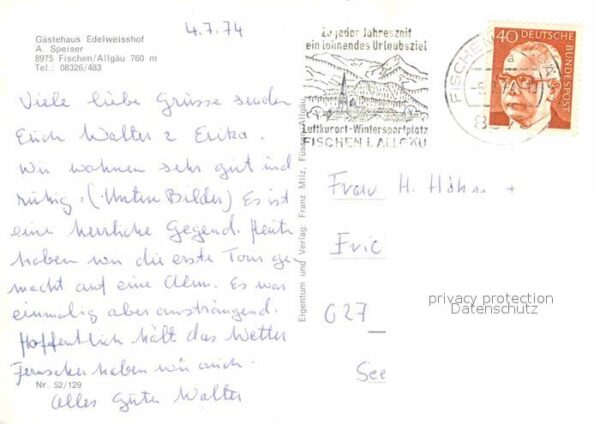 4.7.74
Gästehaus Edelweisshof
A. Speiser
8975 Fischen/Allgäu 760 m
Tel.: 08326/483
Viele liebe Grüsse senden
Euch Walter & Erika.
Wir wohnen sehr gut und
ruhig. (Unten Bilder) Es ist
eine herrliche Gegend. Heute
haben wir die erste Tour ge
macht auf eine Alm. Es war
einmalig aber anstrengend.
Hoffentlich hält das Wetter
Fernseher haben wir auch.
Nr. 52/129
Alles Gute Walter
Eigentum und Verlag Franz Milz, Füssen/Allgäu
Zu jeder Jahreszeit
ein lohnendes Urlaubsziel
Luftkurort-Wintersportplatz
FISCHEN I. ALLGÄU
FISCHEN
a
40
DEUTSCHE
BUNDESPOST
Frau H.
privacy protection
Datenschutz